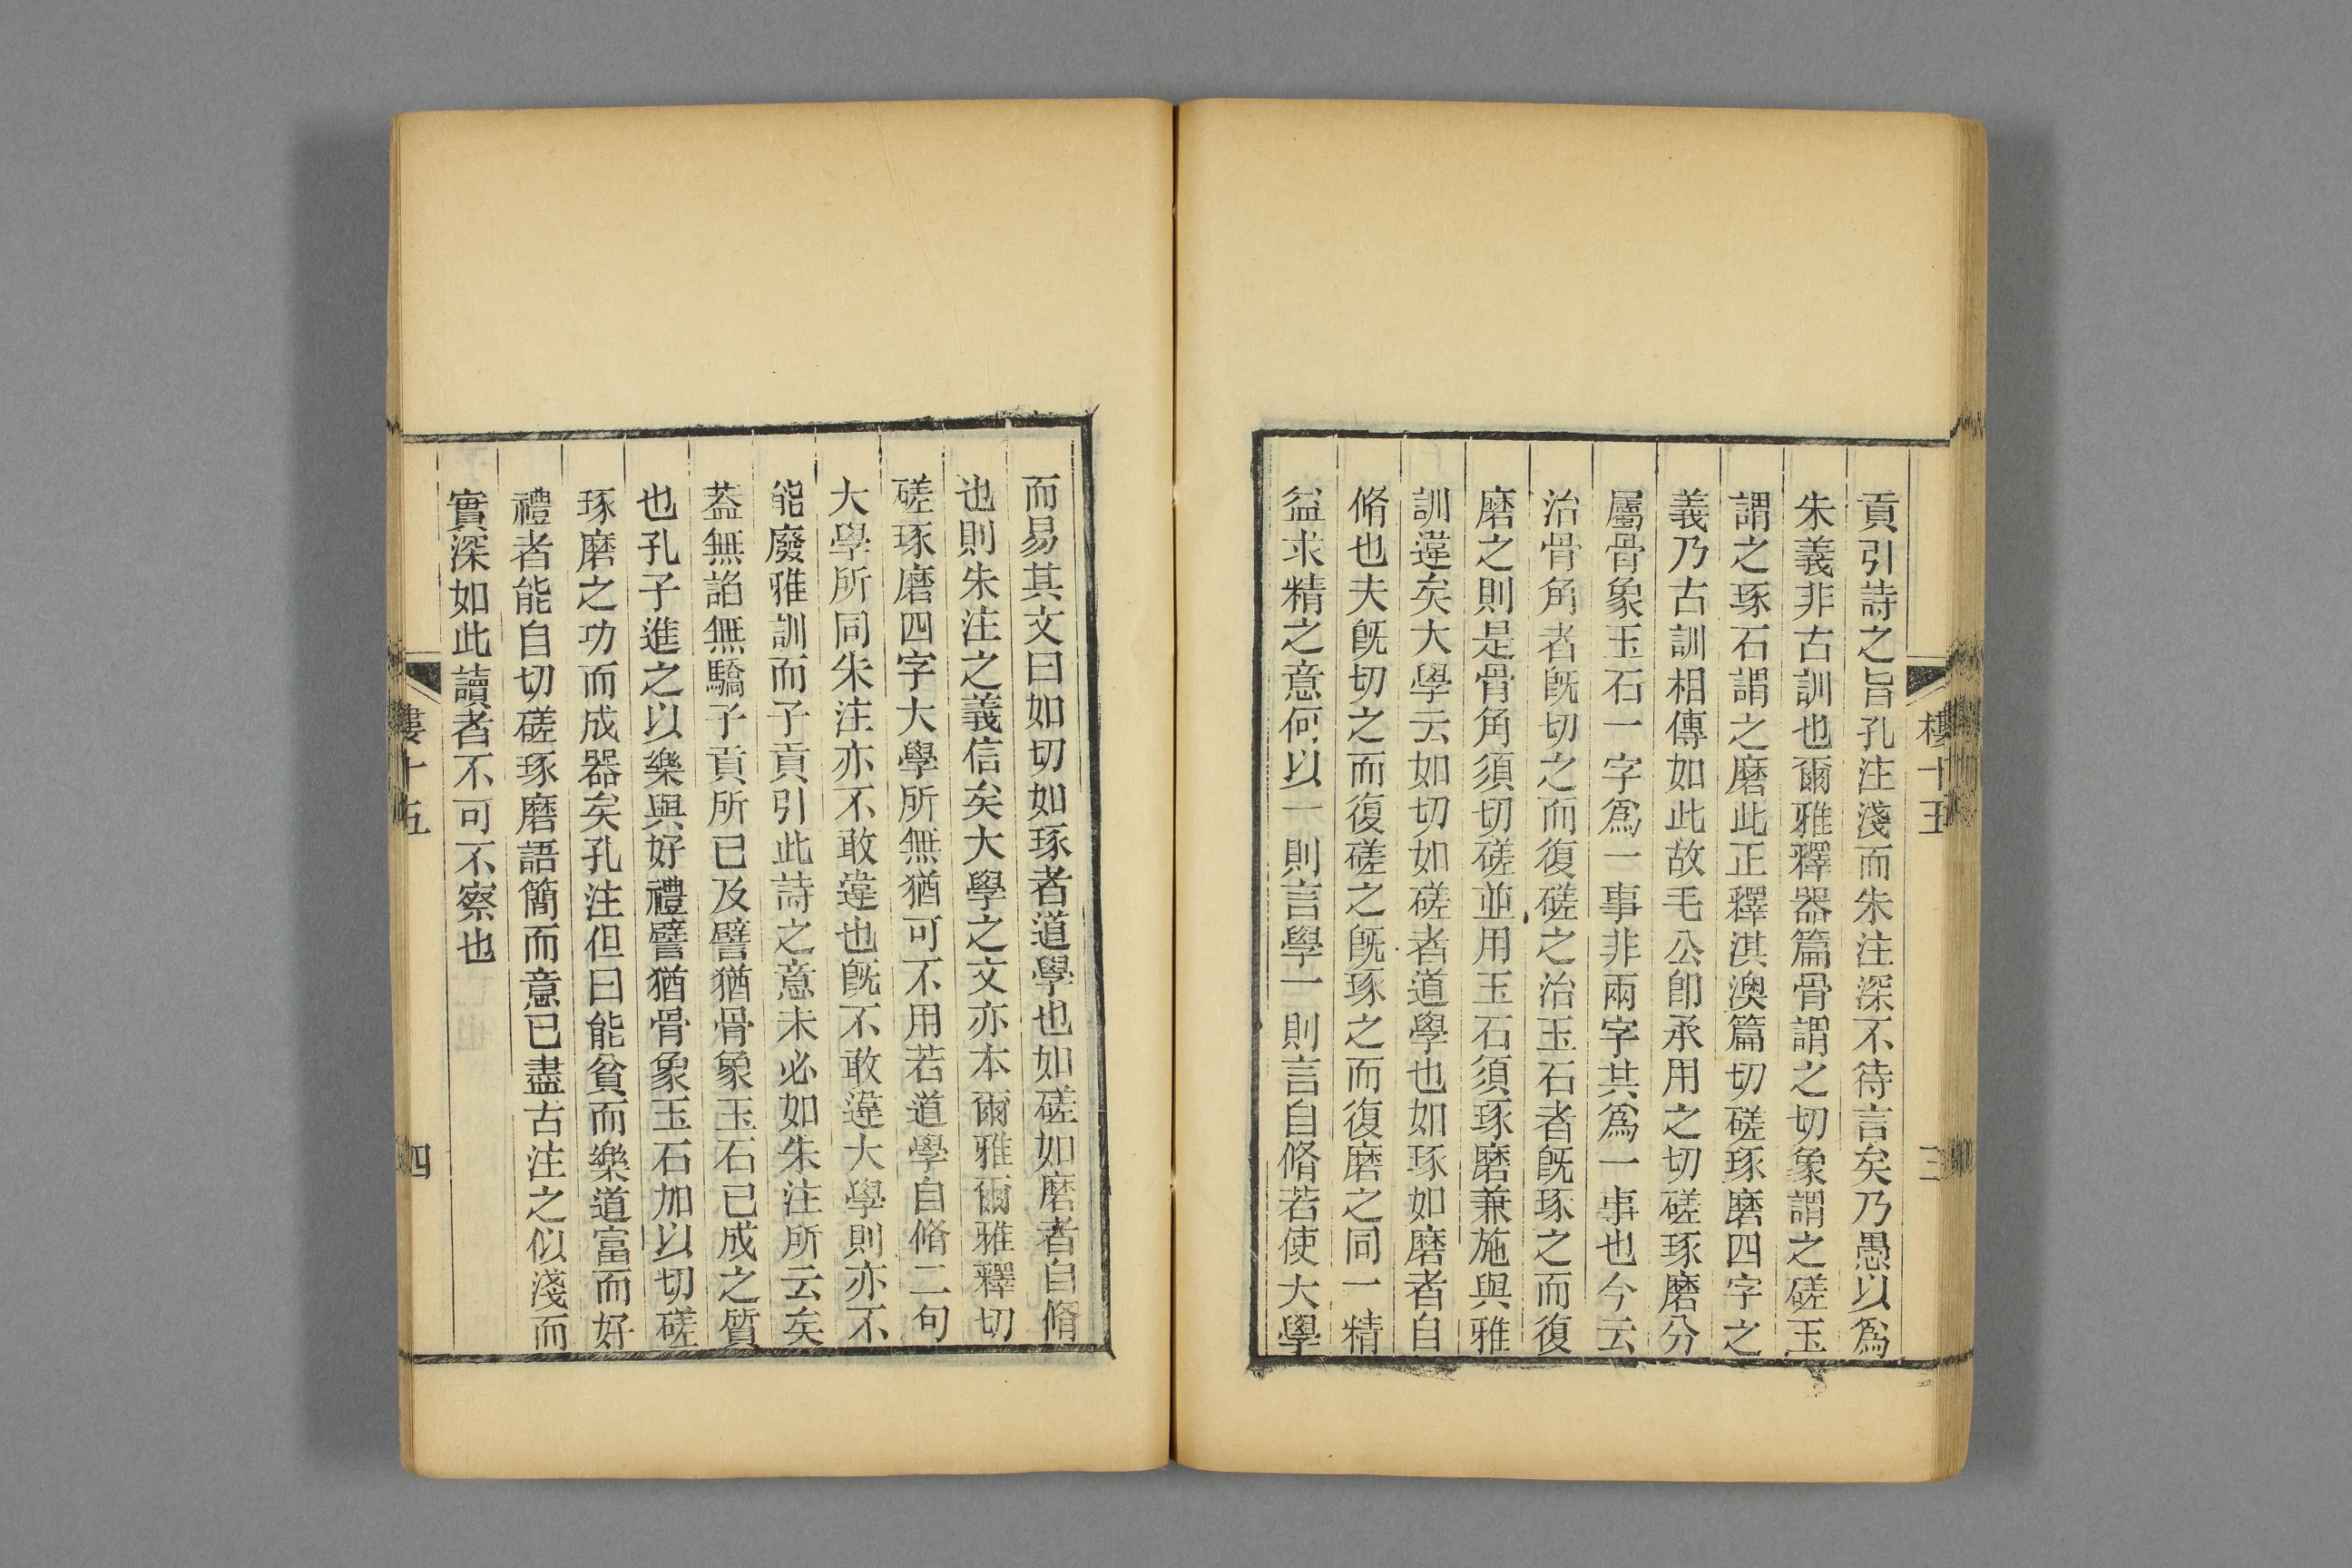 樓十五
三
貢引詩之旨孔注淺而朱注深不待言矣乃愚以爲
朱義非古訓也爾雅釋器篇骨謂之切象謂之磋玉
謂之琢石謂之磨此正釋淇澳篇切磋琢磨四字之
義乃古訓相傳如此故毛公卽承用之切磋琢磨分
屬骨象玉石一字爲一事非兩字共爲一事也今云
治骨角者旣切之而復磋之治玉石者旣琢之而復
磨之則是骨角須切磋並用玉石須琢磨兼施與雅
訓違矣大學云如切如磋者道學也如琢如磨者自
脩也夫旣切之而復磋之旣琢之而復磨之同一精
益求精之意何以一則言學一則言自脩若使大學
而易其文曰如切如琢者道學也如磋如磨者自脩
也則朱注之義信矣大學之文亦本爾雅爾雅釋切
磋琢磨四字大學所無猶可不用若道學自脩二句
大學所同朱注亦不敢違也旣不敢違大學則亦不
能廢雅訓而子貢引此詩之意未必如朱注所云矣
葢無諂無驕子貢所已及譬猶骨象玉石已成之質
也孔子進之以樂與好禮譬猶骨象玉石加以切磋
琢磨之功而成器矣孔注但曰能貧而樂道富而好
禮者能自切磋琢磨語簡而意已盡古注之似淺而
實深如此讀者不可不察也
樓十五
四